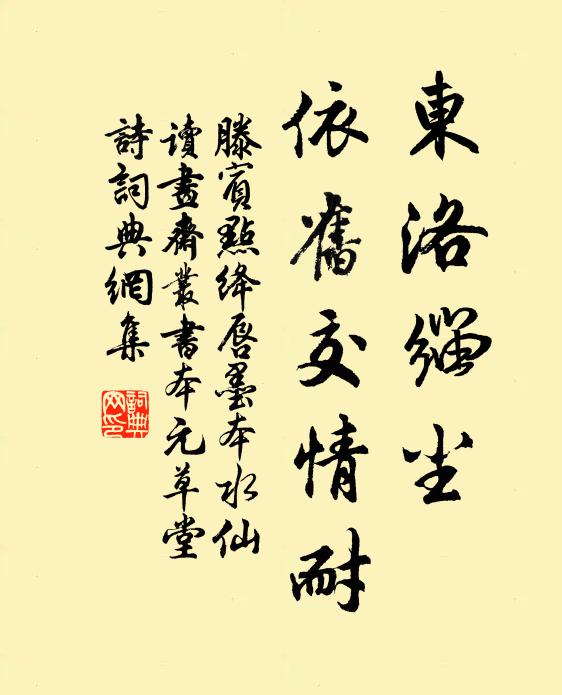 東洛緇尘
依舊交情耐
滕賓點絳唇墨本水仙
讀畫齋叢書本元草堂
詩詞典網集
詞典网印